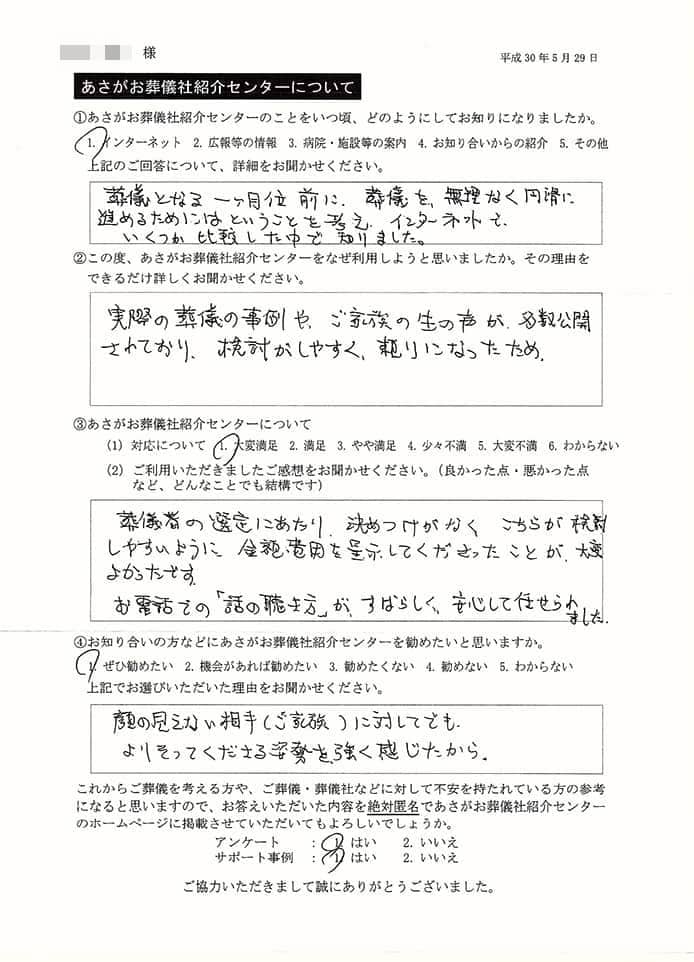 様
平成30年5月29日
あさがお葬儀社紹介センターについて
①あさがお葬儀社紹介センターのことをいつ頃、どのようにしてお知りになりましたか。
1. インターネット 2. 広報等の情報 3. 病院・施設等の案内 4. お知り合いからの紹介 5. その他
上記のご回答について、詳細をお聞かせください。
葬儀となる一ヶ月位前に、葬儀を、無理なく円滑に
進めるためにはということを考え、インターネットで、
いくつか比較した中で知りました。
②この度、あさがお葬儀社紹介センターをなぜ利用しようと思いましたか。その理由を
できるだけ詳しくお聞かせください。
実際の葬儀の事例や、ご家族の生の声が、多数公開
されており、検討がしやすく、頼りになったため、
③あさがお葬儀社紹介センターについて
(1) 対応について 1. 大変満足 2. 満足 3. やや満足 4. 少々不満 5. 大変不満 6. わからない
(2) ご利用いただきましたご感想をお聞かせください。(良かった点・悪かった点
など、どんなことでも結構です)
葬儀者の選定にあたり、決めつけがなく、こちらが検討
しやすいように、金額費用を呈示してくださったことが、大変
よかったです。
お電話での「話の聴き方」が、すばらしく、安心して任せられ
ました。
④お知り合いの方などにあさがお葬儀社紹介センターを勧めたいと思いますか。
1. ぜひ勧めたい 2. 機会があれば勧めたい 3. 勧めたくない 4. 勧めない 5. わからない
上記でお選びいただいた理由をお聞かせください。
顔の見えない相手(ご家族)に対してでも、
よりそってくださる姿勢を強く感じたから。
これからご葬儀を考える方や、ご葬儀・葬儀社などに対して不安を持たれている方の参考
になると思いますので、お答えいただいた内容を絶対匿名であさがお葬儀社紹介センター
のホームページに掲載させていただいてもよろしいでしょうか。
アンケート : 1. はい 2. いいえ
サポート事例 : 1. はい 2. いいえ
ご協力いただきまして誠にありがとうございました。